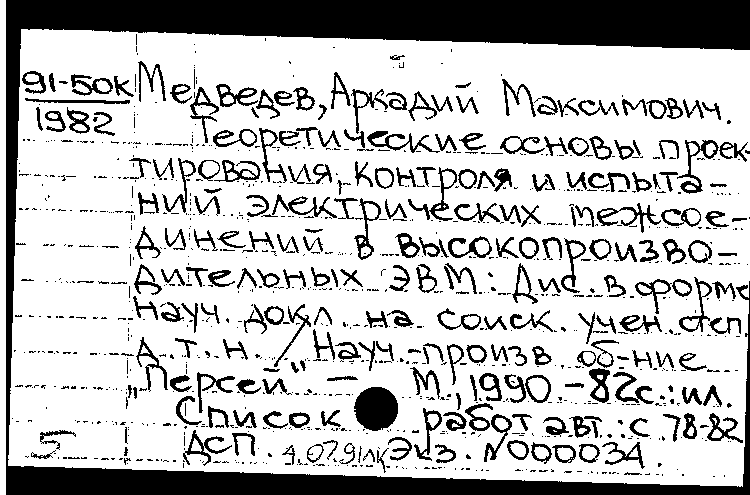 91-50к Медведев, Аркадий Максимович.
1982 Теоретические основы проек-
тирования, контроля и испыта-
ний электрических межсое-
динений в высокопроизво-
дительных ЭВМ: Дис. в форме
науч. докл. на соиск. учен. степ.
д.т.н. / Науч.-произв об-ние
„Персей". – М., 1990. – 82с.: ил.
Список работ авт.: с. 78-82
5 ДСП. 4.07.91лк Экз. N000034.